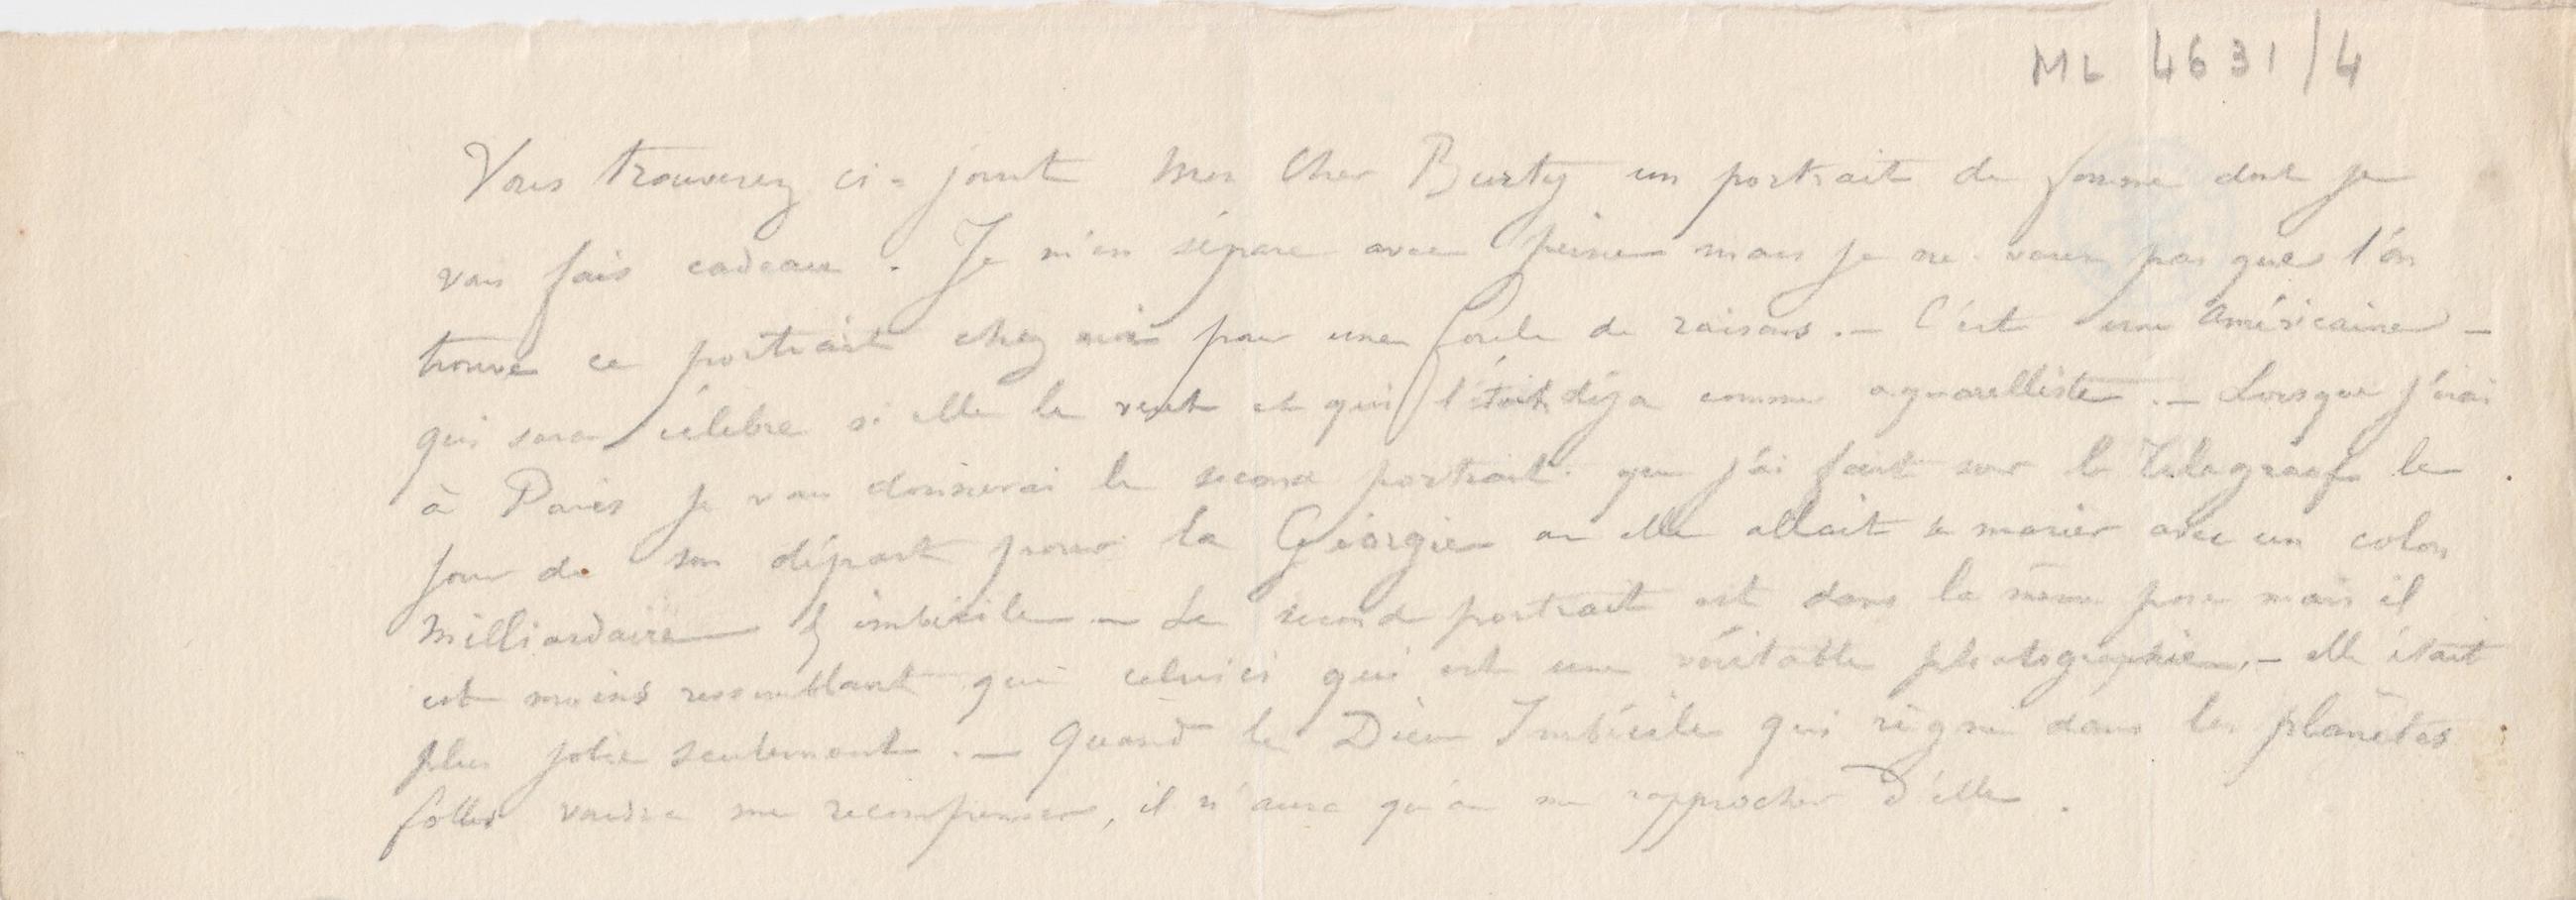 ML 4631/4
Vous trouverez ci-joint Mon Cher Burty un portrait de femme dont je
vous fais cadeau. Je m'en sépare avec peine mais je ne veux pas que l'on
trouve ce portrait chez moi pour une foule de raisons. — C'est une Américaine —
qui sera célèbre si elle le veut et qui l'était déja comme aquarelliste. — Lorsque j'irai
à Paris je vous donnerai le second portrait que j'ai fait sur le Telegraaf le
jour de son départ pour la Géorgie où elle allait se marier avec un colon
Milliardaire & imbécile — Le second portrait est dans la même pose mais il
est moins ressemblant que celui ci qui est une véritable photographie. — elle était
plus jolie seulement. — Quand le Dieu Imbécile qui règne dans les planètes
folles voudra me recompenser, il n'aura qu'à me rapprocher d'elle.